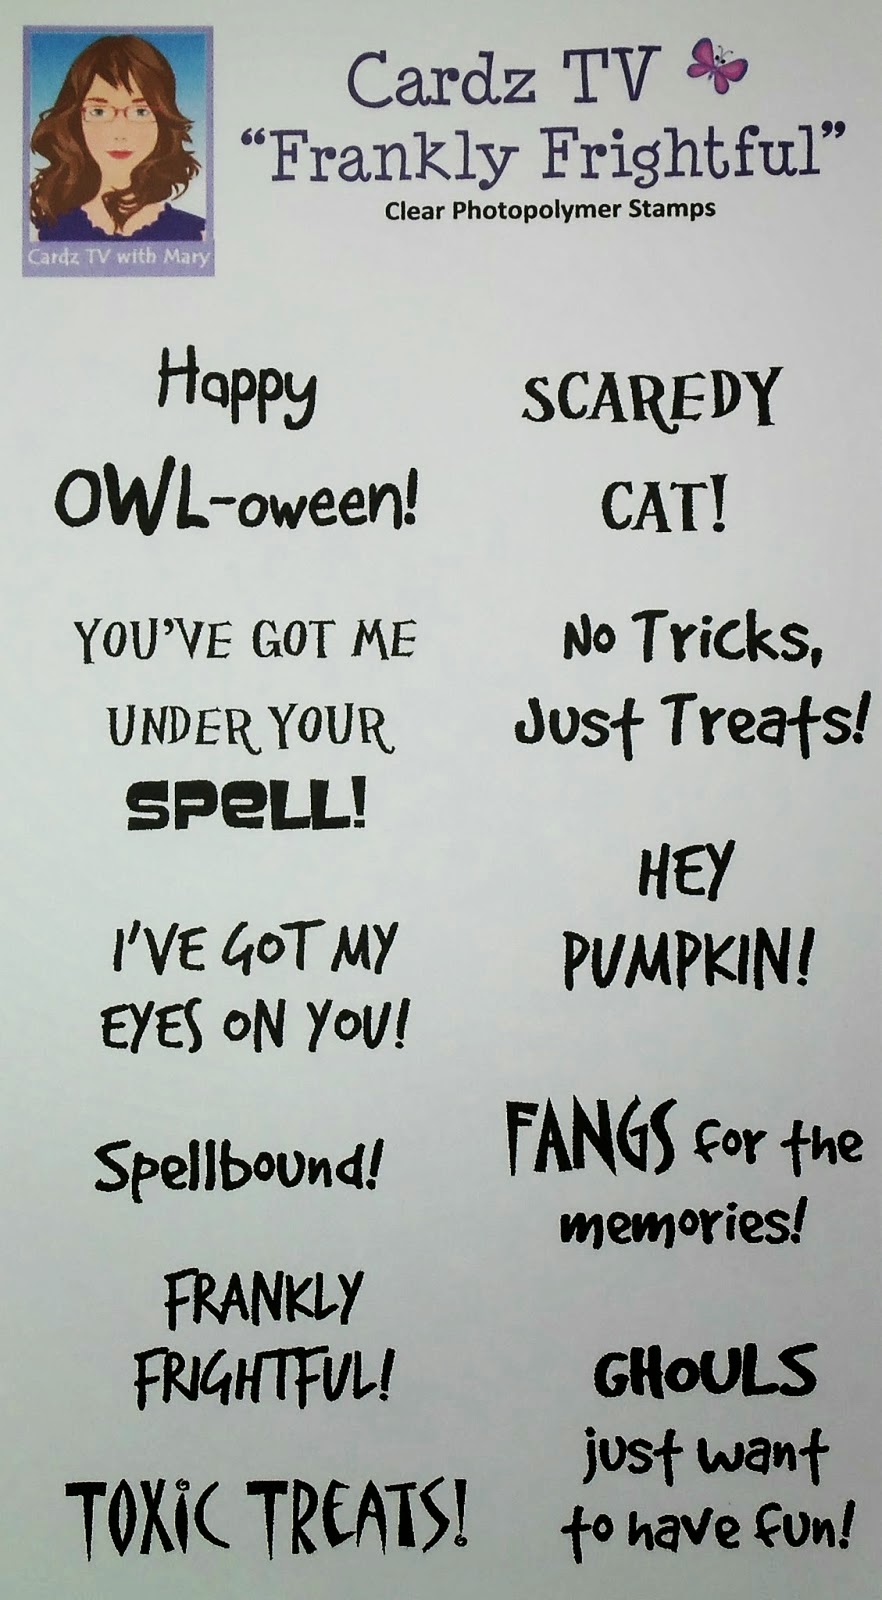 Cardz TV
"Frankly Frightful"
Clear Photopolymer Stamps
Cardz TV with Mary
Happy
OWL-oween!
YOU'VE GOT ME
UNDER YOUR
SPELL!
I'VE GOT MY
EYES ON YOU!
Spellbound!
FRANKLY
FRIGHTFUL!
TOXIC TREATS!
SCAREDY
CAT!
No Tricks,
Just Treats!
HEY
PUMPKIN!
FANGS for the
memories!
GHOULS
just want
to have fun!